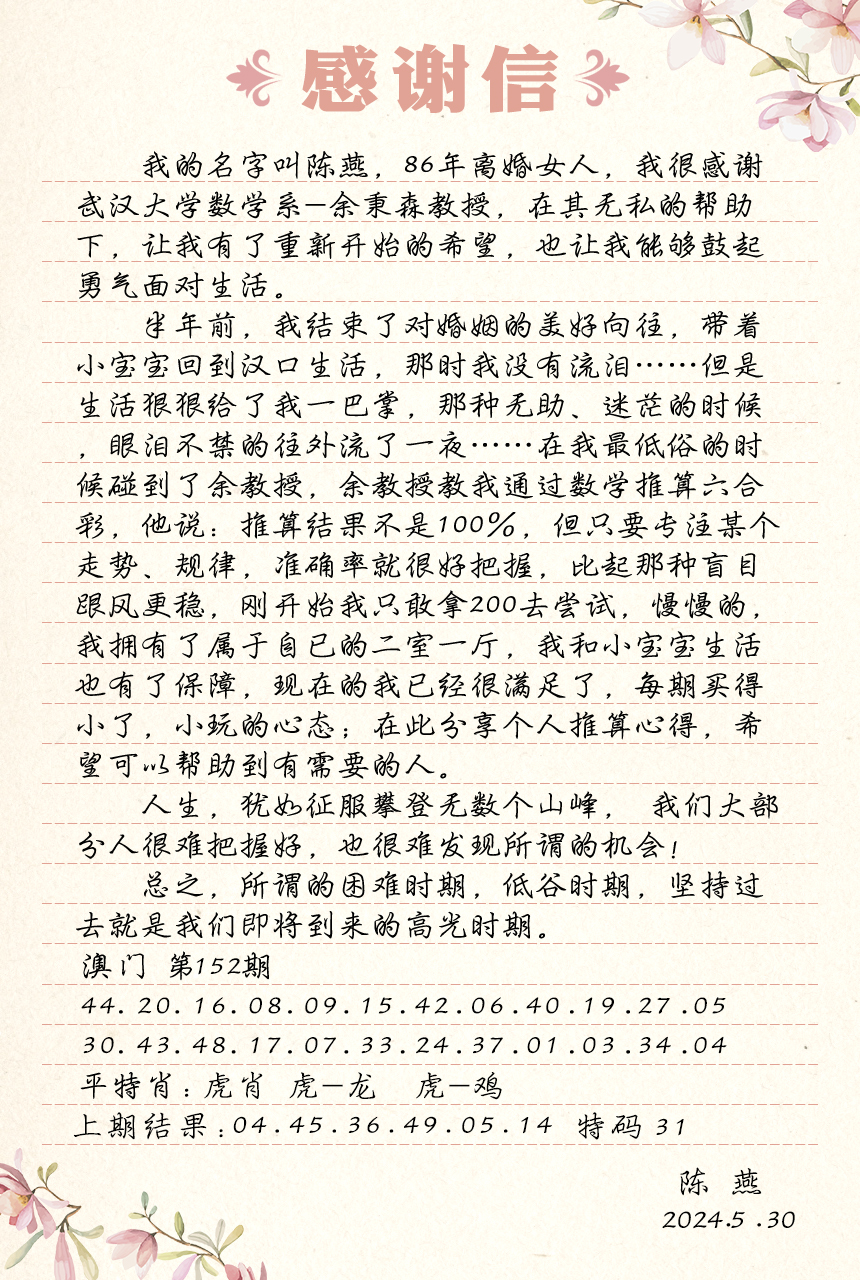 感谢信
我的名字叫陈燕，86年离婚女人，我很感谢
武汉大学数学系-余秉森教授，在其无私的帮助
下，让我有了重新开始的希望，也让我能够鼓起
勇气面对生活。
半年前，我结束了对婚姻的美好向往，带着
小宝宝回到汉口生活，那时我没有流泪……但是
生活狠狠给了我一巴掌，那种无助、迷茫的时候
，眼泪不禁的往外流了一夜……在我最低俗的时
候碰到了余教授，余教授教我通过数学推算六合
彩，他说：推算结果不是100%，但只要专注某个
走势、规律，准确率就很好把握，比起那种盲目
跟风更稳，刚开始我只敢拿200去尝试，慢慢的，
我拥有了属于自已的二室一厅，我和小宝宝生活
也有了保障，现在的我已经很满足了，每期买得
小了，小玩的心态；在此分享个人推算心得，希
望可以帮助到有需要的人。
人生，犹如征服攀登无数个山峰， 我们大部
分人很难把握好，也很难发现所谓的机会！
总之，所谓的困难时期，低谷时期，坚持过
去就是我们即将到来的高光时期。
澳门 第152期
44.20.16.08.09.15.42.06.40.19.27.05
30.43.48.17.07.33.24.37.01.03.34.04
平特肖：虎肖 虎-龙 虎-鸡
上期结果：04.45.36.49.05.14 特码 31
陈 燕
2024.5.30